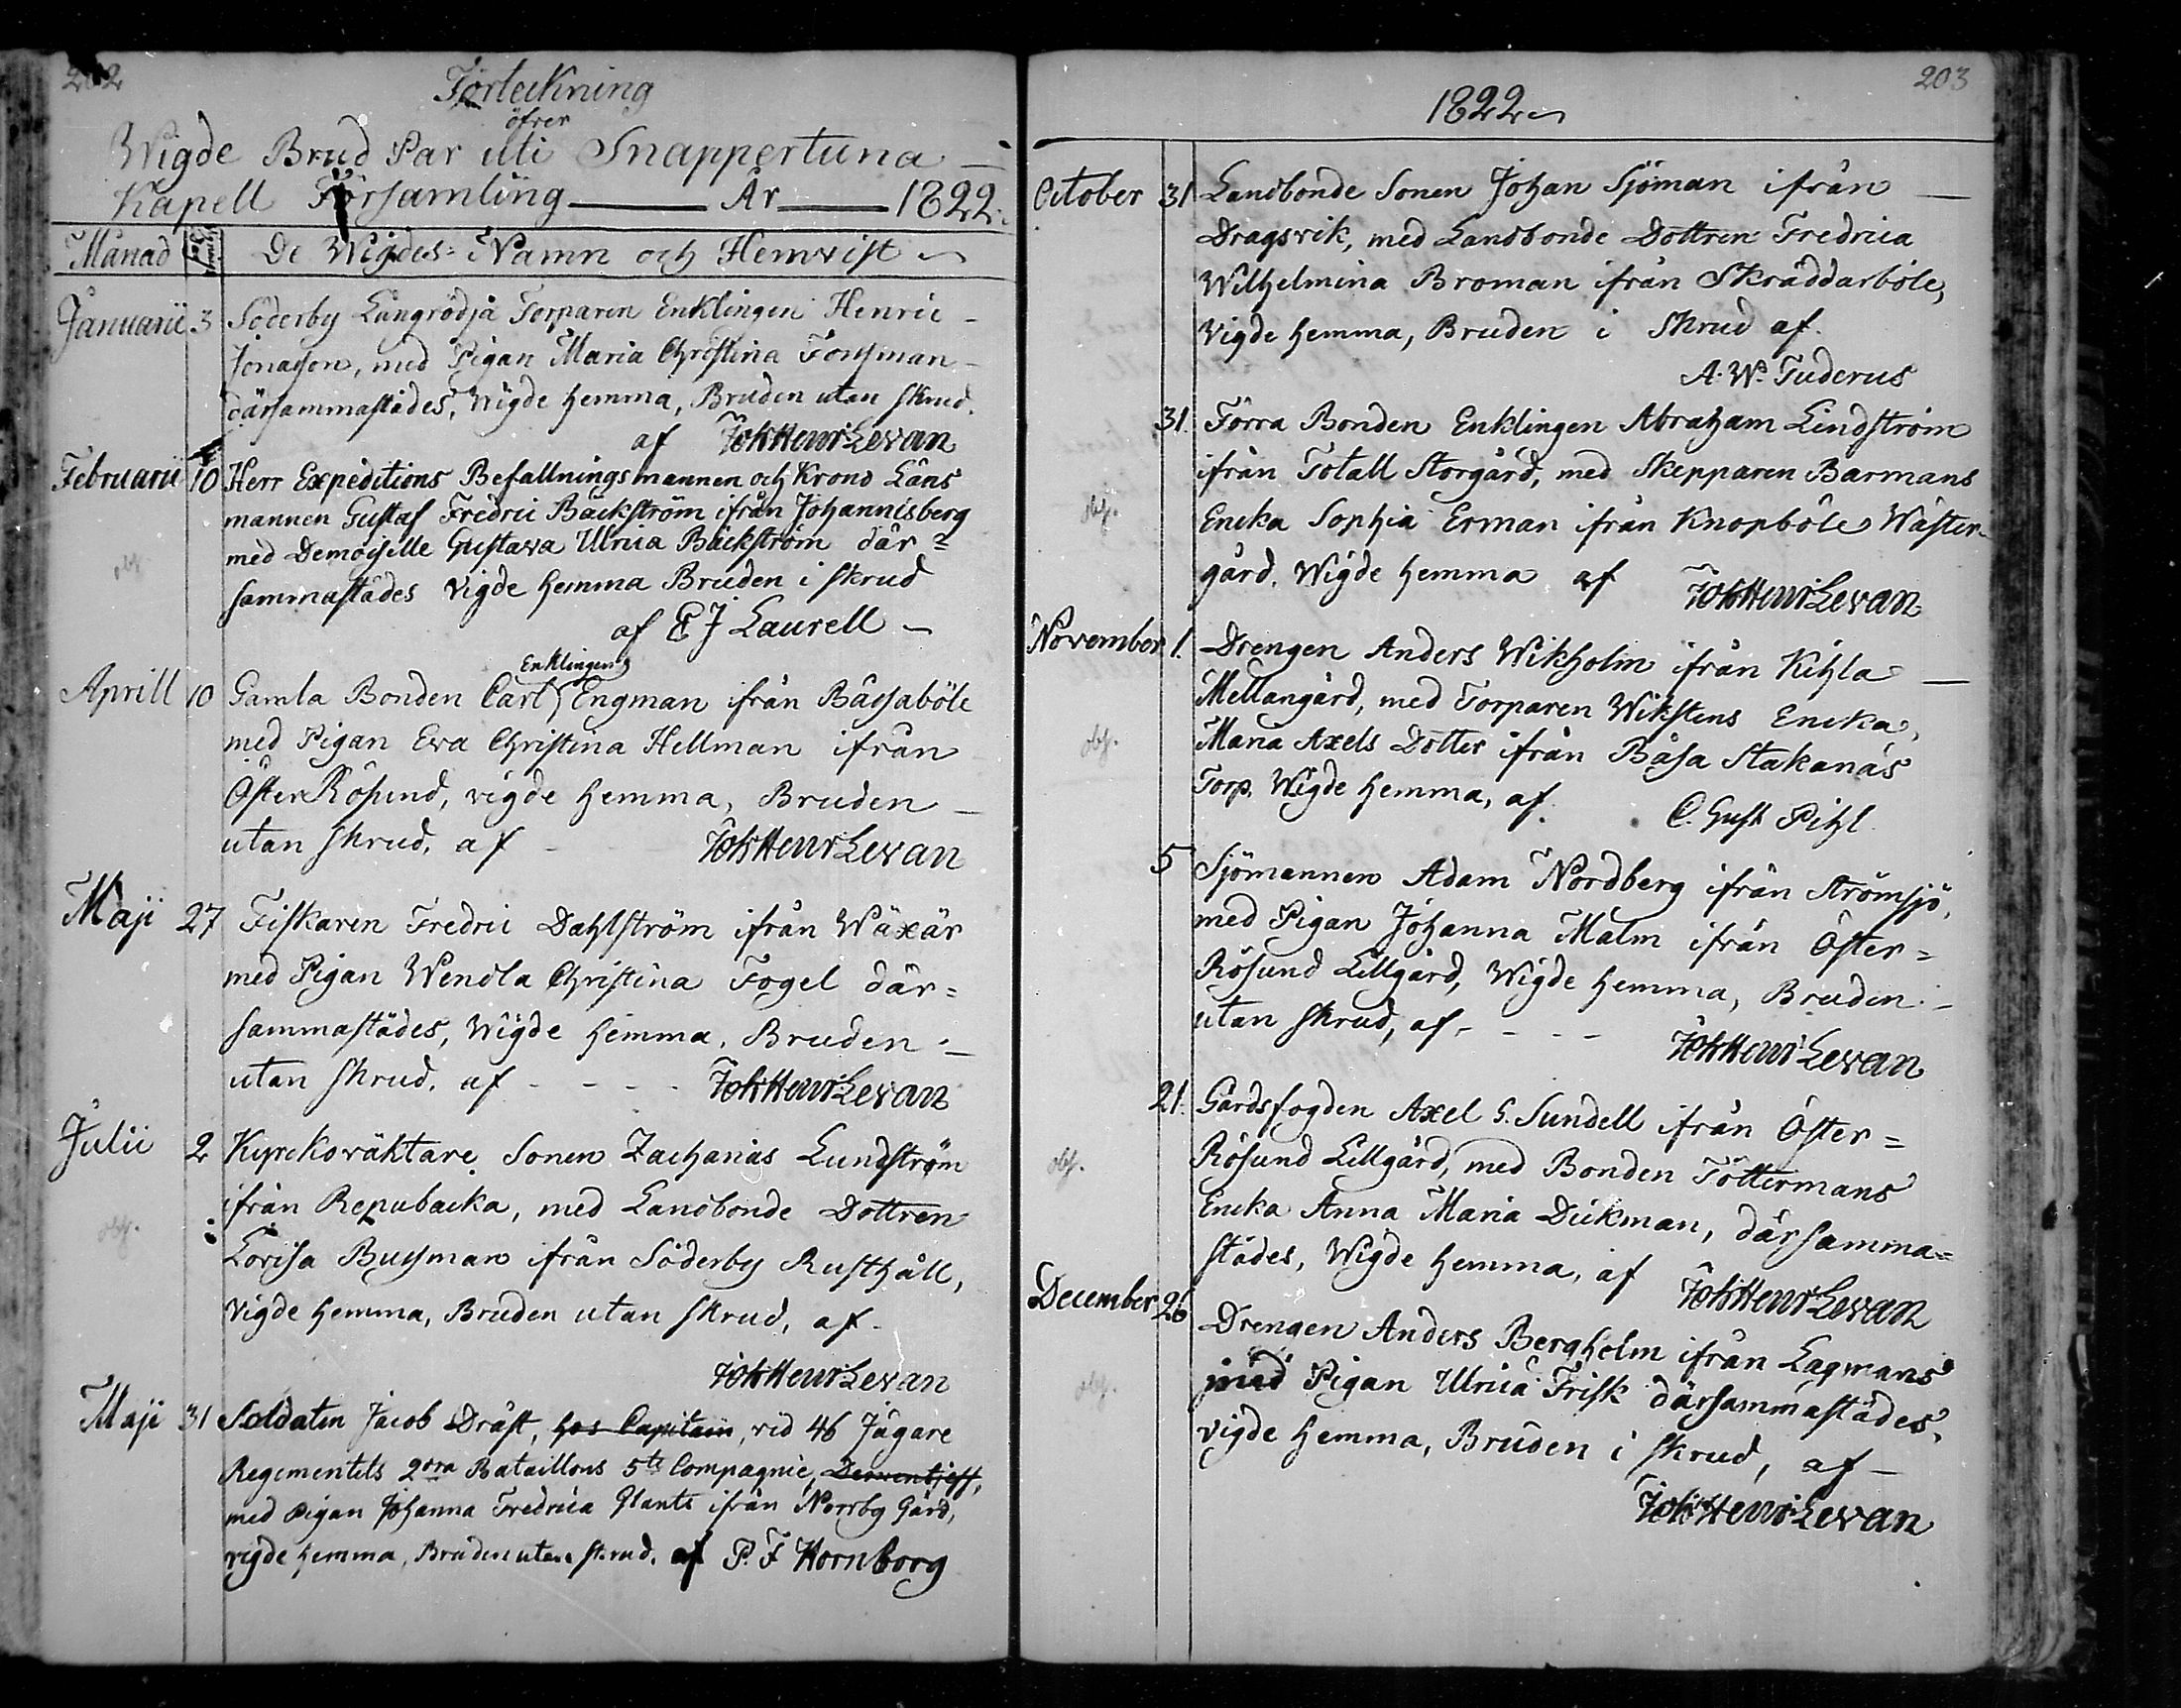 202
Förteckning
öfver
Wigde Brud Par uti Snappertuna
Kapell Församling — År — 1822.
Månad De Wigdes Namn och Hemvist
Januarii 3 Söderby Långrödja Torparen Enklingen Henric
Jonasson, med Pigan Maria Christina Forsman
därsammastädes, Wigde hemma, Bruden utan skrud.
af Joh Henr Levan
Februarii 10 Herr Expeditions Befallningsmannen och Krono Läns
mannen Gustaf Fredric Bäckström ifrån Johannisberg
med Demoiselle Gustava Ulrica Bäckström där=
sammastädes vigde hemma Bruden i skrud
af E J Laurell
Enklingen
Aprill 10 Gamla Bonden Carl Engman ifrån Båssaböle
med Pigan Eva Christina Hellman ifrån
Öster Rösund, vigde hemma, Bruden
utan skrud, af Joh Henr Levan
Maji 27 Fiskaren Fredric Dahlström ifrån Wäxär
med Pigan Wendla Christina Fogel där=
sammastädes, Wigde hemma, Bruden
utan skrud, af - - - - Joh Henr Levan
Julii 2 Kyrckoväktare Sonen Zacharias Lundström
ifrån Repubacka, med Landbonde Dottren
obs.
Lovisa Bussman ifrån Söderby Rusthåll,
Vigde hemma, Bruden utan skrud, af
Joh Henr Levan
Maji 31 Soldaten Jacob Dråst, hos Capitain, vid 46 Jägare
Regementets 2dra Bataillons 5te Compagnie,
med Pigan Johanna Fredrica Plante ifrån Norrby Gård,
vigde hemma, Bruden utan skrud. af P. F Hornborg
203
1822
October 31 Landbonde Sonen Johan Sjöman ifrån
Dragsvik, med Landbonde Dottren Fredrica
Wilhelmina Broman ifrån Skräddarböle,
vigde hemma, Bruden i Skrud af
A. W. Tuderus
31. Förra Bonden Enklingen Abraham Lindström
ifrån Totall Storgård, med Skepparen Barmans
obs.
Encka Sophia Erman ifrån Knopböle Wäster-
gård, Wigde hemma af Joh Henr Levan
November 1. Drengen Anders Wikholm ifrån Kihla
Mellangård, med Torparen Wikstens Encka,
obs.
Maria Axels Dotter ifrån Båsa Stakanäs
Torp, Wigde hemma, af C. Gust Pihl
5 Sjömannen Adam Nordberg ifrån Strömsjö,
med Pigan Johanna Malm ifrån Öster=
Rösund Lillgård, Wigde hemma, Bruden
utan skrud, af - - - - Joh Henr Levan
21. Gårdsfogden Axel G. Sundell ifrån Öster=
obs.
Rösund Lillgård, med Bonden Töttermans
Encka Anna Maria Dickman, därsamma=
städes, Wigde hemma, af Joh Henr Levan
December 26 Drengen Anders Bergholm ifrån Lagmans
obs.
med Pigan Ulrica Frisk därsammastädes,
vigde hemma, Bruden i skrud, af
Joh Henr Levan